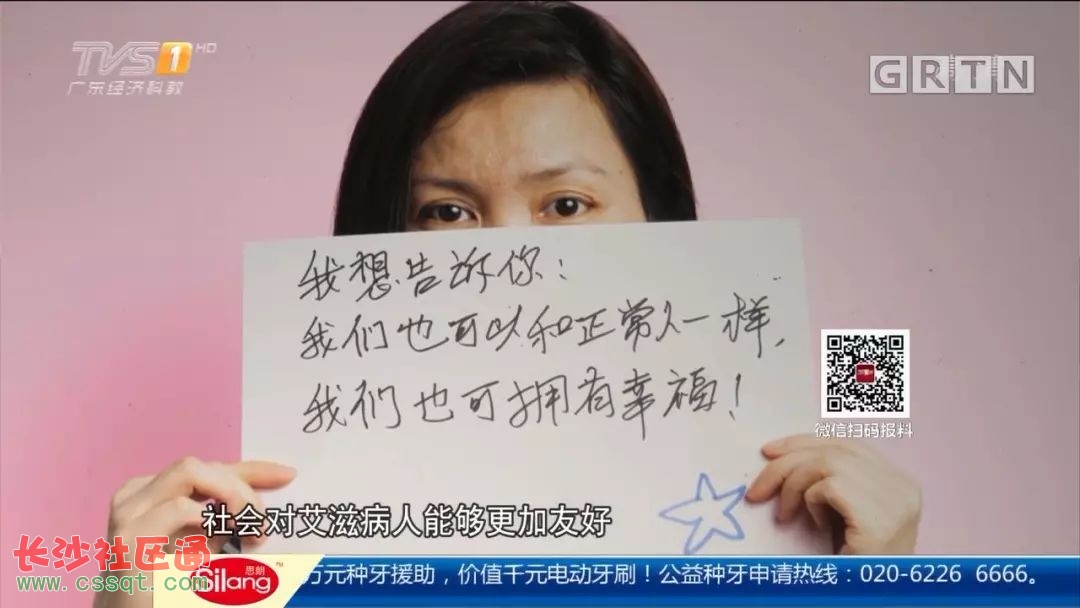 TVS1 HD
广东经济科教
GRTN
我想告诉你：
我们也可以和正常人一样，
我们也可拥有幸福！
微信扫码报料
社会对艾滋病人能够更加友好
长沙社区通
www.cssqt.com
思朗
Silang™
万元种牙援助，价值千元电动牙刷！公益种牙申请热线：020-6226 6666。